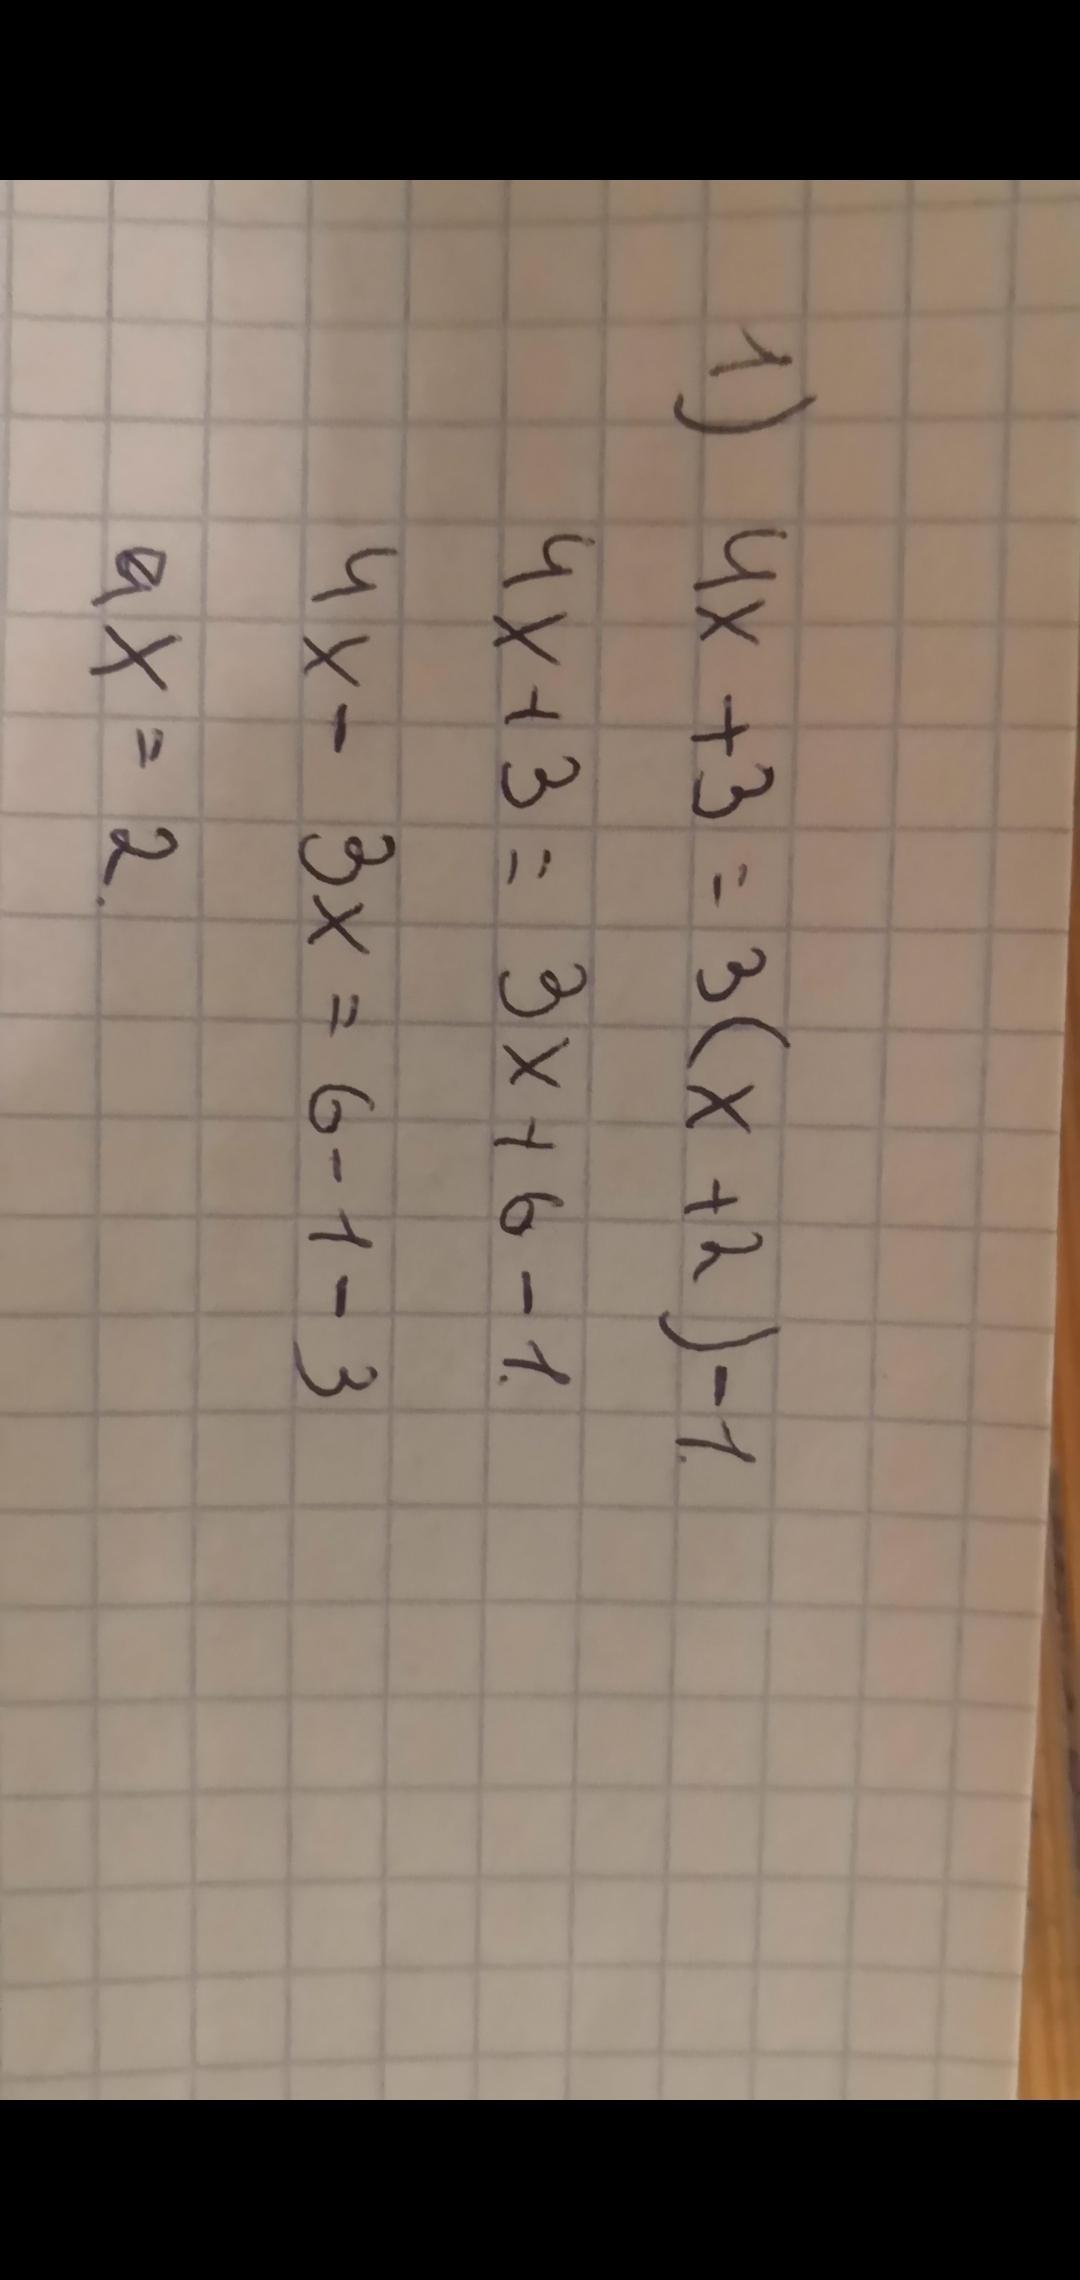 1) 4x + 3 = 3(x + 2) - 1.
4x + 3 = 3x + 6 - 1.
4x - 3x = 6 - 1 - 3
x = 2.